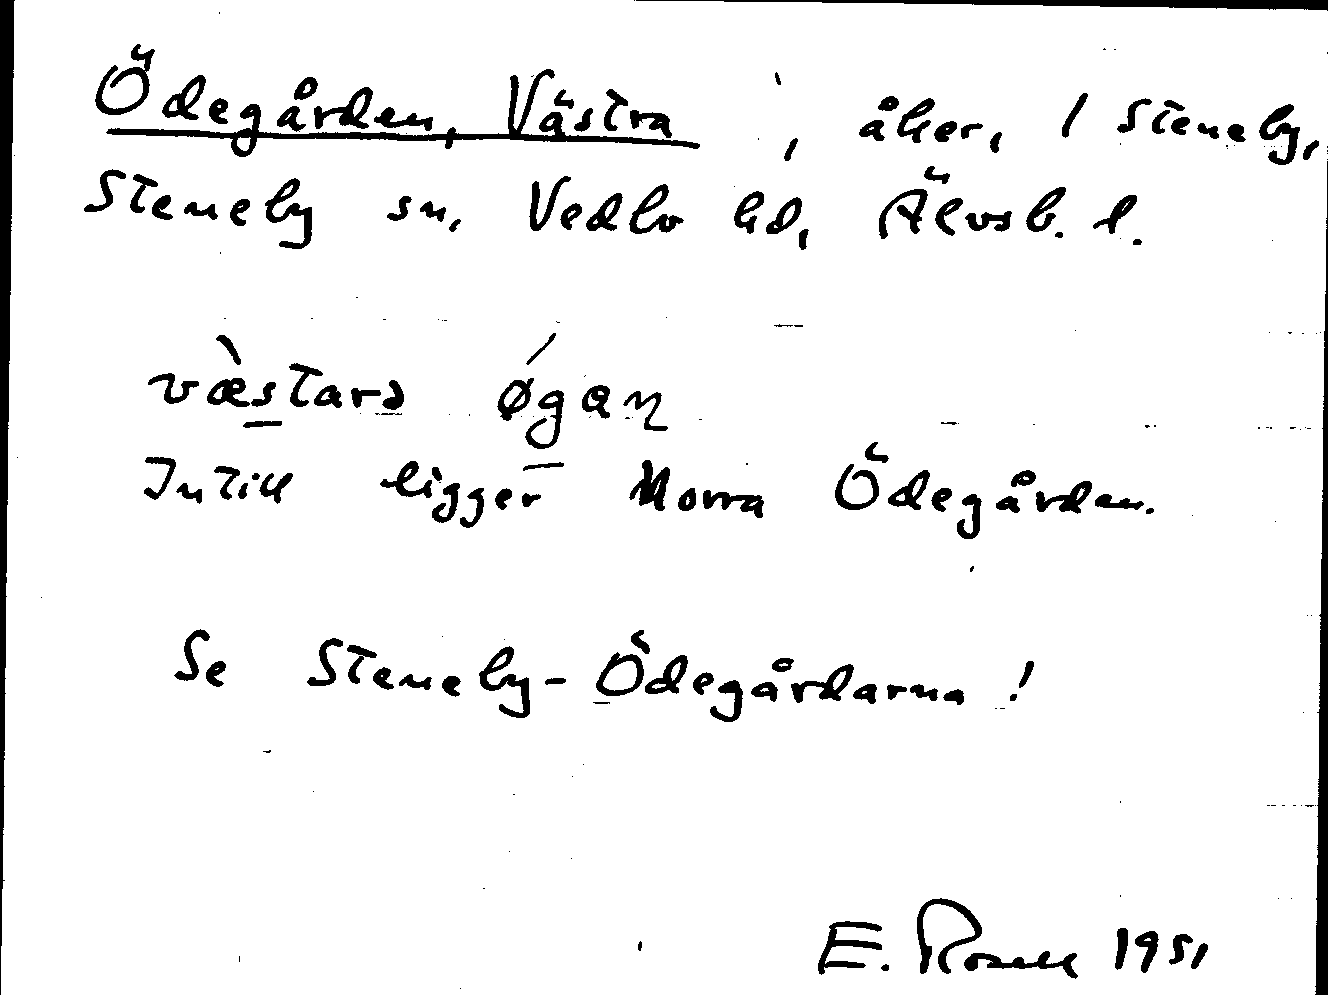 Ödegården, Västra, åker, / Steneby,
Steneby sn, Vedbo hd, Älvsb. l.
væ̀starə øgan
Intill ligger Norra Ödegården.
Se Steneby-Ödegårdarna!
E. Rosell 1951